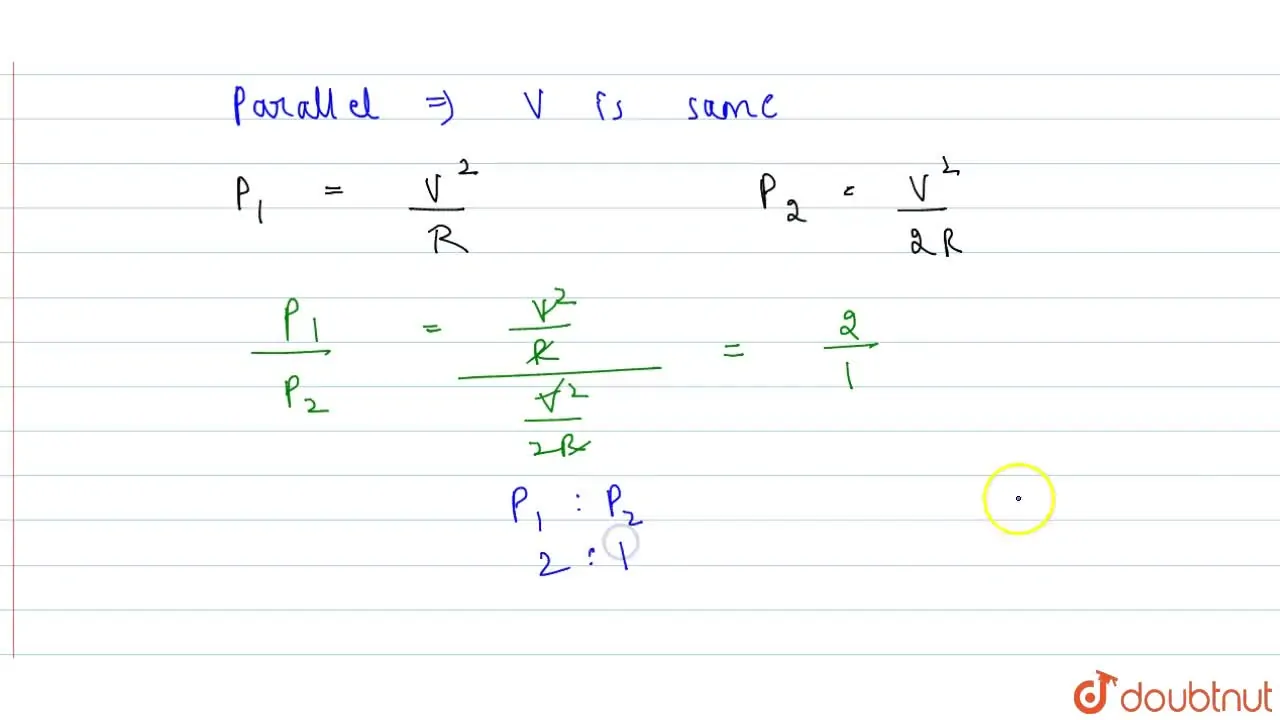 Parallel ⇒ V is same
P₁ = V²/R P₂ = V²/2R
P₁/P₂ = (V²/R)/(V²/2R) = 2/1
P₁ : P₂
2 : 1
doubtnut